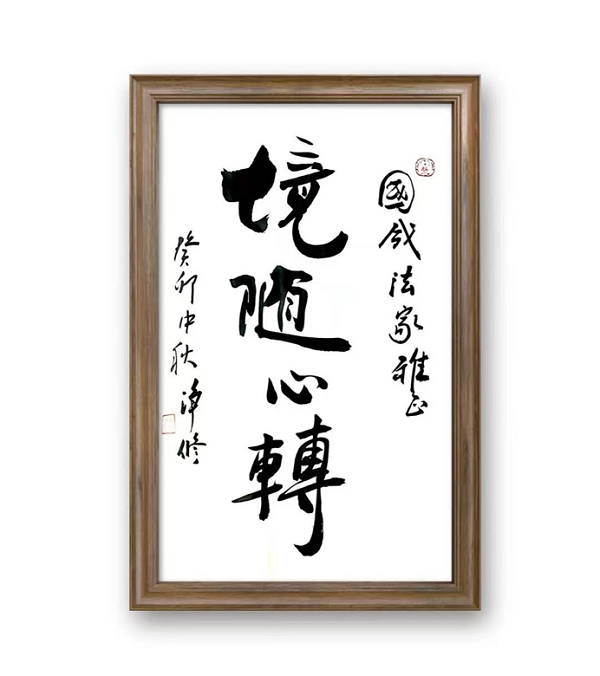 國法家雅正
境随心轉
癸卯中秋淨修